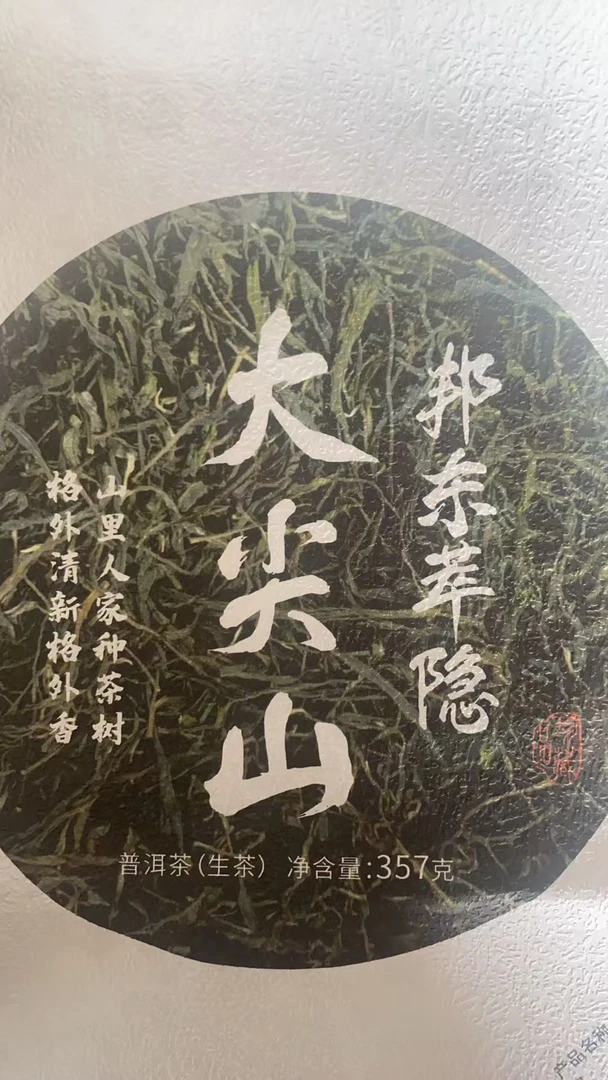 邦东萃隐
大尖山
山里人家种茶树
格外清新格外香
普洱茶(生茶) 净含量:357克
产品名称